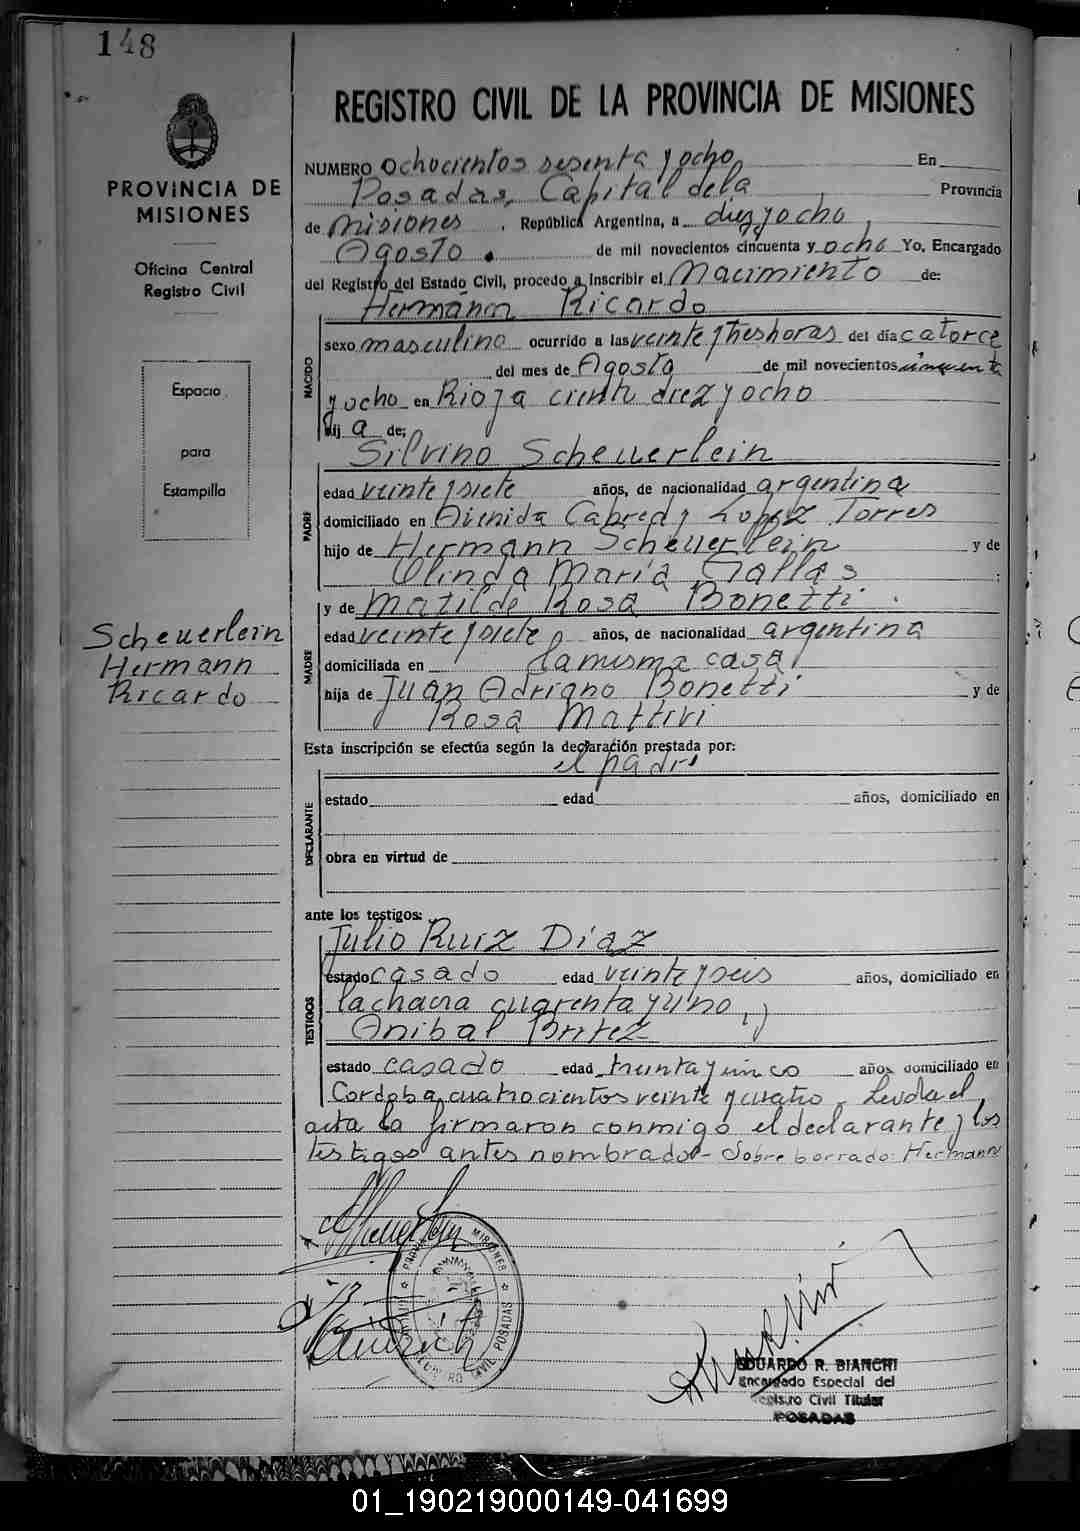 148
PROVINCIA DE
MISIONES
Oficina Central
Registro Civil
Espacio
para
Estampilla
Scheuerlein
Hermann
Ricardo
REGISTRO CIVIL DE LA PROVINCIA DE MISIONES
NUMERO Ochocientos sesenta y ocho En
Posadas, Capital dela Provincia
de Misiones , República Argentina, a diez y ocho,
Agosto. de mil novecientos cincuenta y ocho Yo, Encargado
del Registro del Estado Civil, procedo a inscribir el Nacimiento de:
Hermann Ricardo
NACIDO
sexo masculino ocurrido a las veinte y tres horas del día catorce
del mes de Agosto de mil novecientos cincuenta
y ocho en Rioja ciento diez y ocho
hij a de:
Silvino Scheuerlein
PADRE
edad veinte y siete años, de nacionalidad argentina
domiciliado en Avenida Cabred y Lopez Torres
hijo de Hermann Scheuerlein y de
Olinda María Gallas ;
y de Matilde Rosa Bonetti.
MADRE
edad veinte y siete años, de nacionalidad argentina
domiciliada en la misma casa
hija de Juan Adriano Bonetti y de
Rosa Mattivi
Esta inscripción se efectúa según la declaración prestada por:
el padre
DECLARANTE
estado edad años, domiciliado en
obra en virtud de
ante los testigos:
Julio Ruiz Diaz
TESTIGOS
estado casado edad veinte y seis años, domiciliado en
la chacra cuarenta y uno, y
Anibal Britez
estado casado edad treinta y cinco años domiciliado en
Cordoba cuatrocientos veinte y cuatro. Leida el
acta la firmaron conmigo el declarante y los
testigos antes nombrados- Sobre borrado: Hermann
MISIONES
POSADAS
EDUARDO R. BIANCHI
Encargado Especial del
Registro Civil Titular
POSADAS
01_190219000149-041699